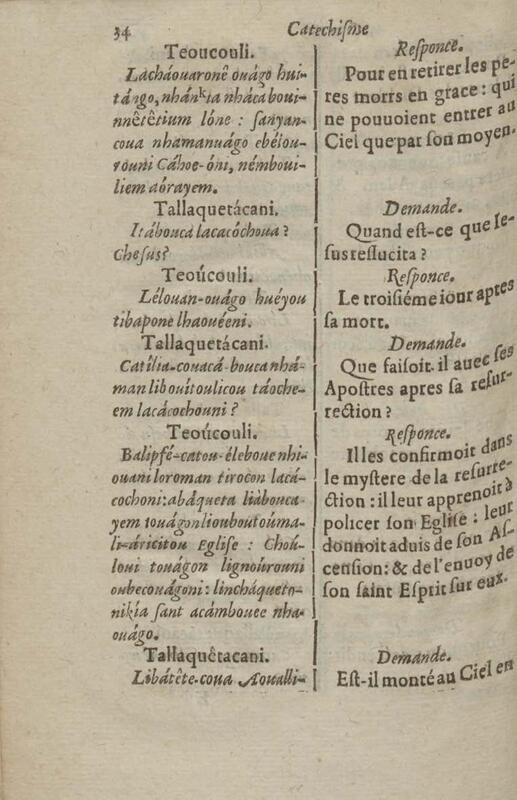 34 Catechiſme
Teoucouli.
Lacháouaronê ouágo hui-
tángo, nhánkia nhácaboui-
nnêtêtium lóne : ſanyan-
coua nhamanuágo ebéiou-
rouni Cáhoe-óni, némboui-
liem aórayem.
Tallaquetácani.
Itábouca lacacóchoua ?
Cheſus?
Teoúcouli.
Lélouan-ouágo huéyou
tibapone lhaouéeni.
Tallaquetácani.
Catíſia-couacá-boucanhá-
man libouitoulicou táoche-
em lacácochouni ?
Teoúcouli.
Balipfé-catou-éleboue nhi-
ouani loroman tirocon lacá-
cochoni: abáqueta liabouca-
yem touágon lioubout oúma-
li-áricitou Egliſe : Choú-
loui touágon lignoúrouni
oubecouágoni: lincháqueto-
nikía ſant acámbouee nha-
ouágo.
Tallaquêtacani.
Libátête-coua Aoualli-
Reſponce.
Pour en retirer les pe-
res morts en grace : qui
ne pouuoient entrer au
Ciel que par ſon moyen.
Demande.
Quand eſt-ce que Ie-
ſus reſſucita ?
Reſponce.
Le troiſiéme iour apres
ſa mort.
Demande.
Que faiſoit-il auec ſes
Apoſtres apres ſa reſur-
rection ?
Reſponce.
Il les confirmoit dans
le myſtere de la reſurre-
ction : il leur apprenoit à
policer ſon Egliſe : leur
donnoit aduis de ſon Aſ-
cenſion: & de l'enuoy de
ſon ſaint Eſprit ſur eux.
Demande.
Eſt-il monté au Ciel en